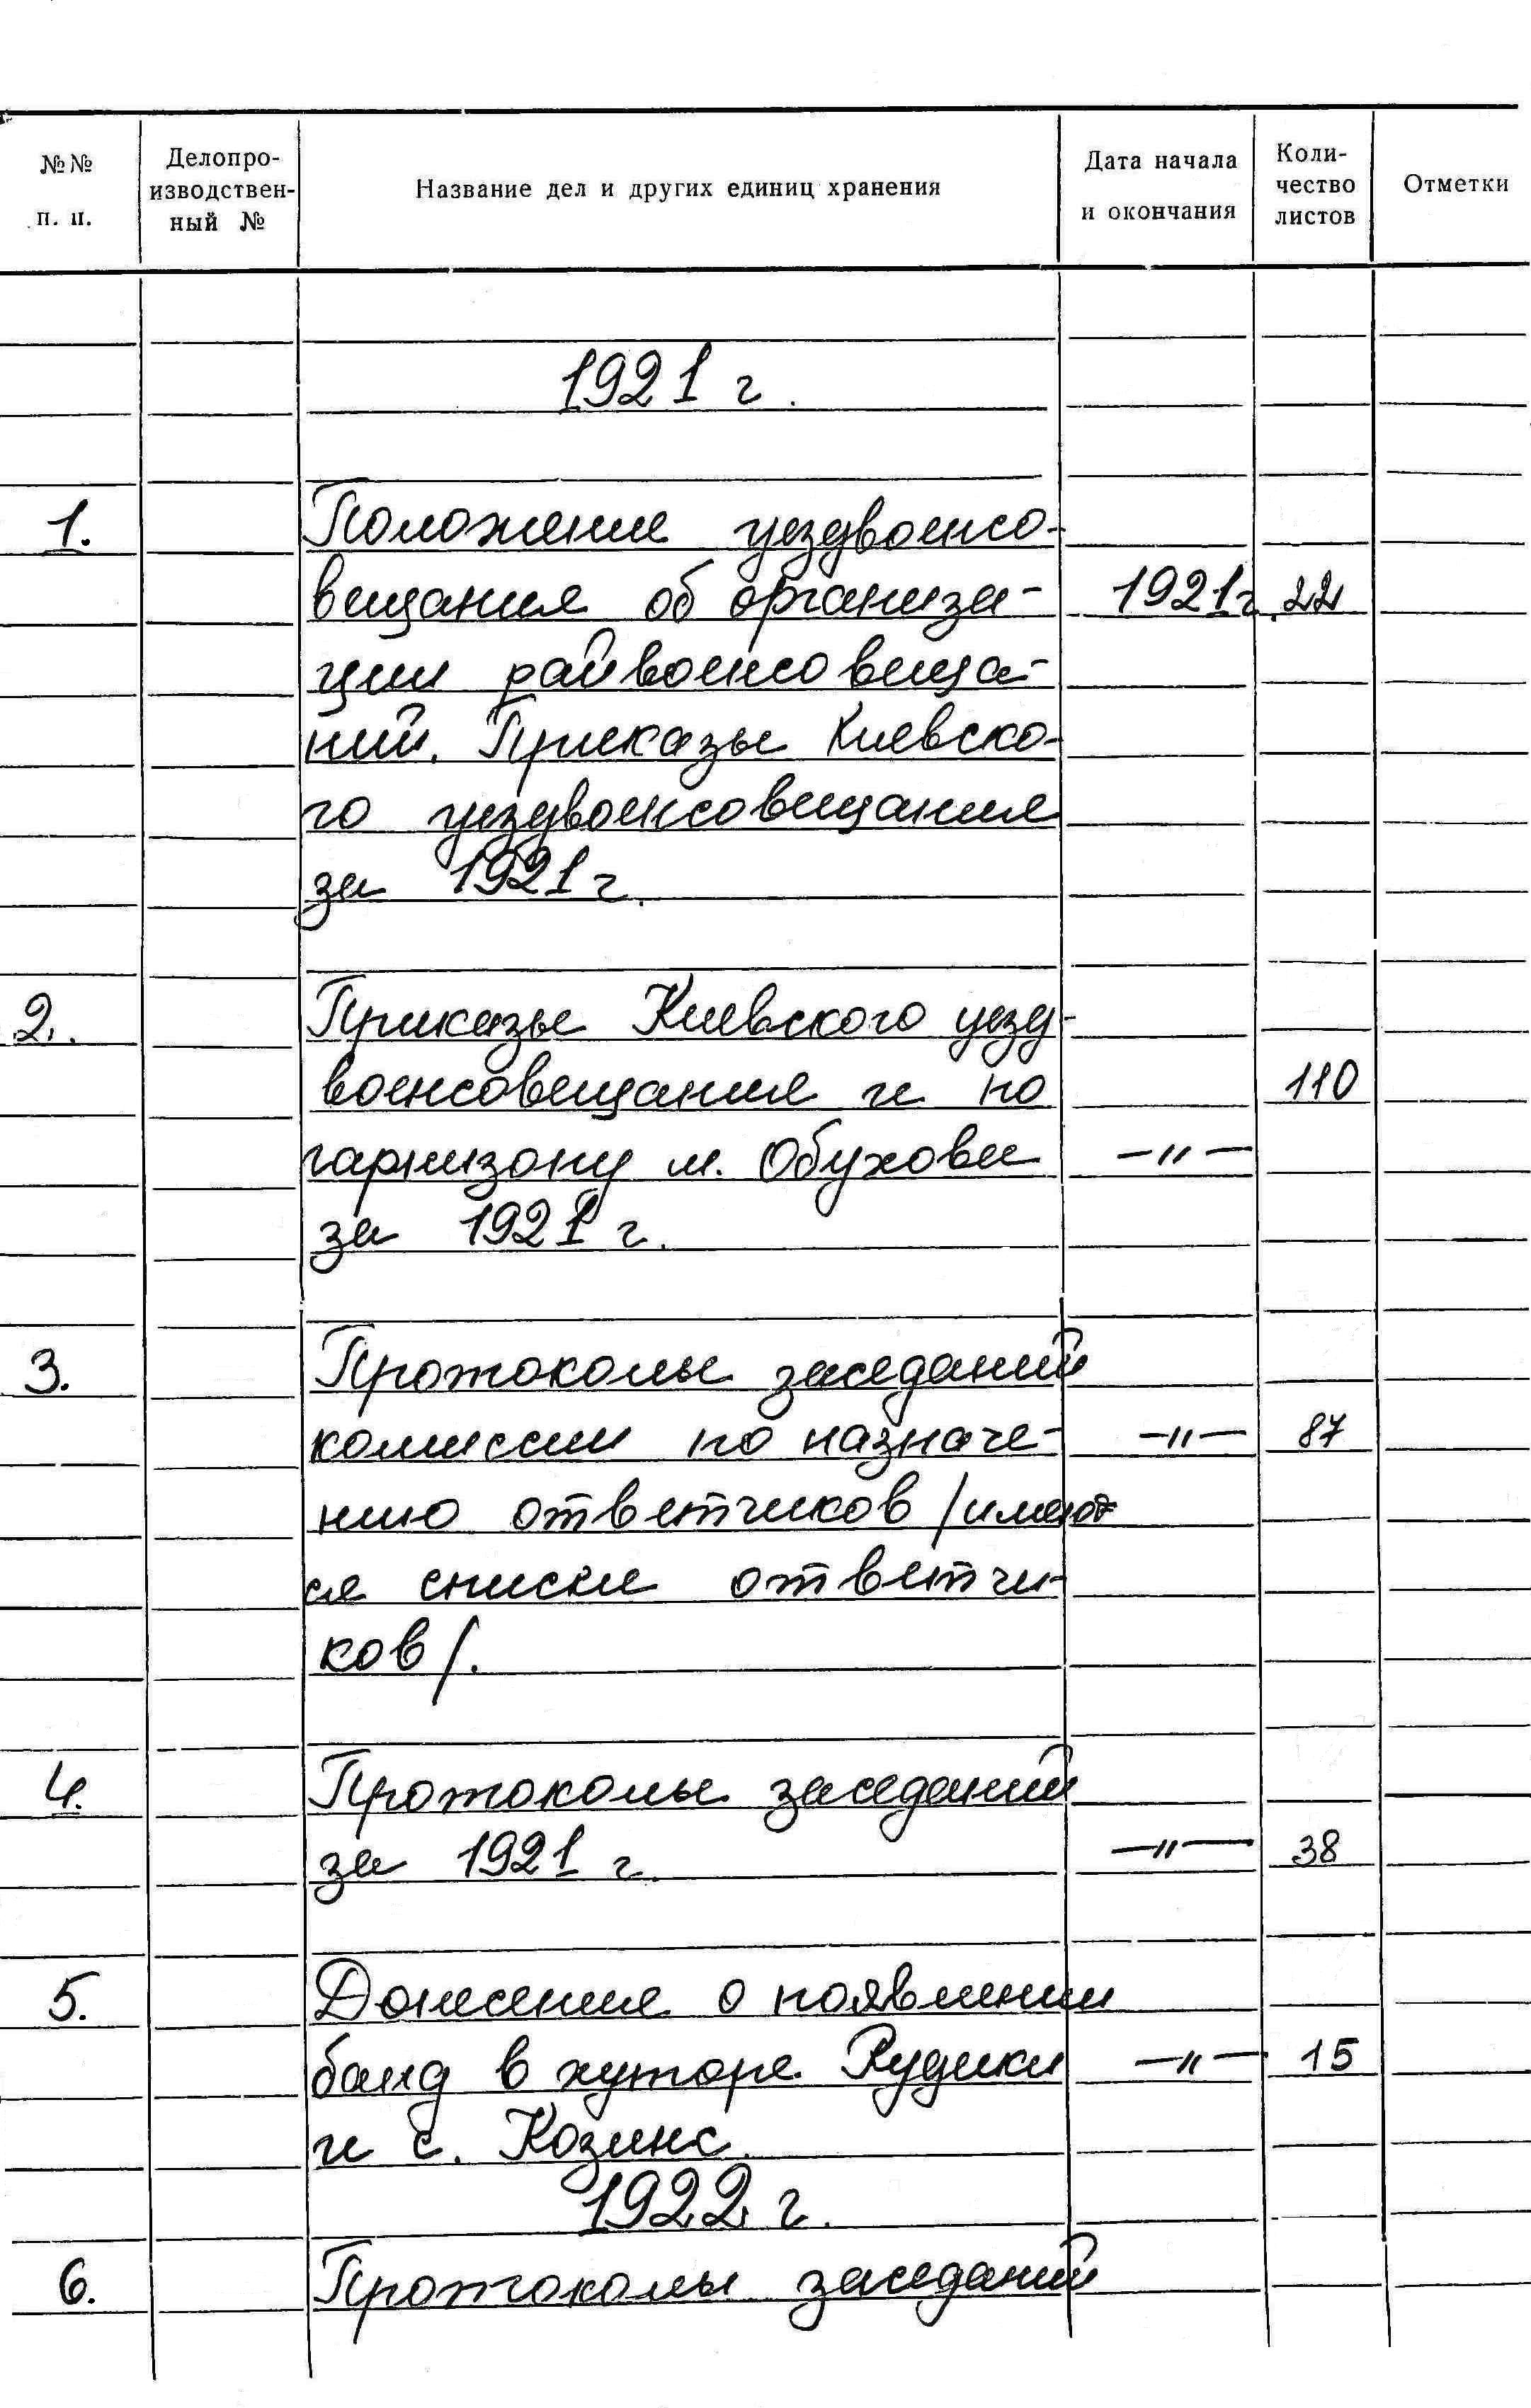 №№ п. п.
Делопро-
изводствен-
ный №
Название дел и других единиц хранения
Дата начала
и окончания
Коли-
чество
листов
Отметки
1921 г.
1. Положение уездвоенсо-
вещания об организа- 1921г. 22
ции райвоенсовеща-
ний. Приказы Киевско-
го уездвоенсовещания
за 1921 г.
2. Приказы Киевского уезд-
военсовещания и по 110
гарнизону м. Обухова —"—
за 1921 г.
3. Протоколы заседаний
комиссии по назначе- —"— 87
нию ответчиков /имеют
ся списки ответчи-
ков/.
4. Протоколы заседаний
за 1921 г. —"— 38
5. Донесение о появлении
банд в хуторе Рудики —"— 15
и с. Козинс.
1922 г.
6. Протоколы заседаний